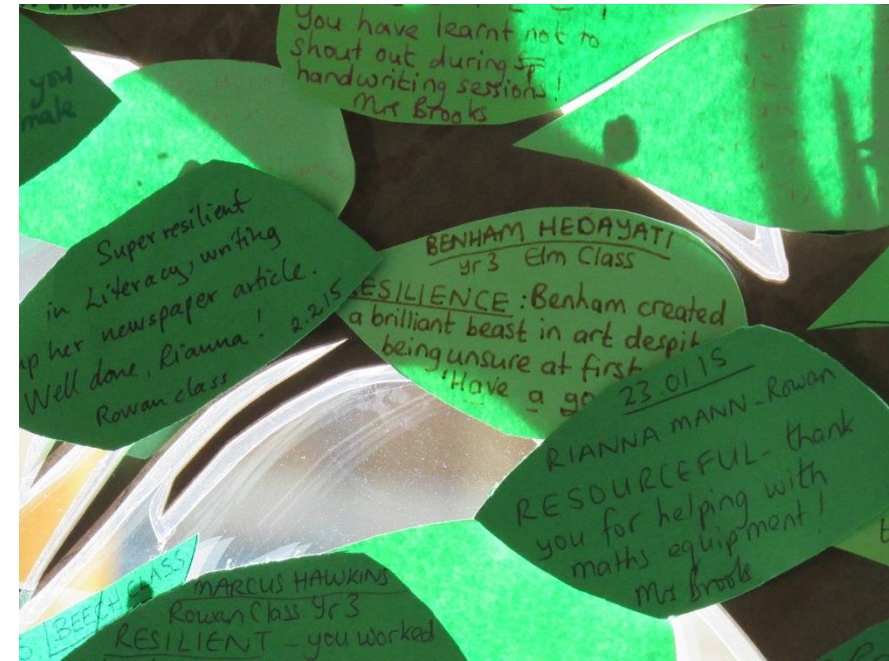 you have learnt not to
shout out during
handwriting sessions!
Mrs Brooks
you
mate
Super resilient
in Literacy, writing
up her newspaper article.
Well done, Rianna! 2.2.15
Rowan class
BENHAM HEDAYATI
yr 3 Elm Class
RESILIENCE: Benham created
a brilliant beast in art despit
being unsure at first
'Have a go
23.01.15
RIANNA MANN - Rowan
RESOURCEFUL - thank
you for helping with
maths equipment!
Mrs Brooks
BEECH CLASS
MARCUS HAWKINS
Rowan Class Yr 3
RESILIENT - you worked